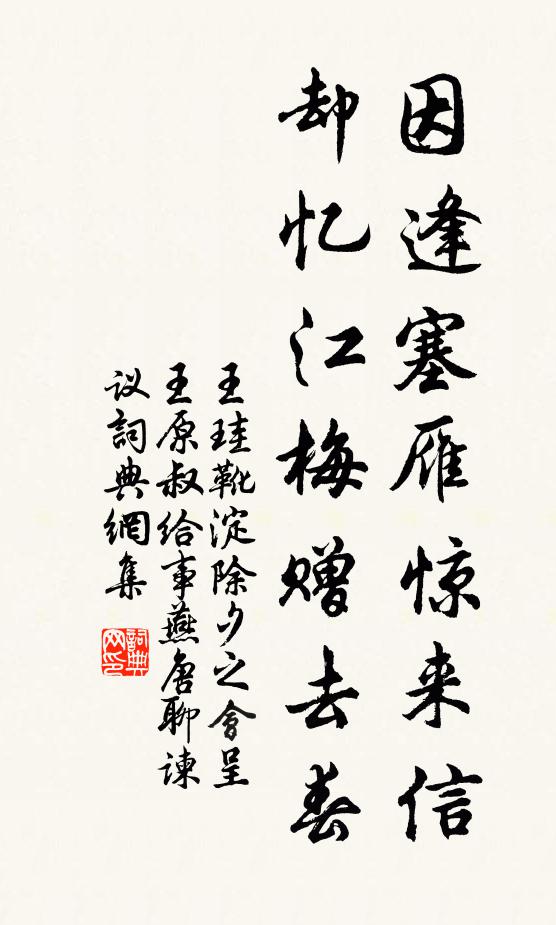 因逢塞雁惊来信
却忆江梅赠去春
王珪靴淀除夕之會呈
王原叔给事燕唐聊諫
议詞典網集
詞典网印